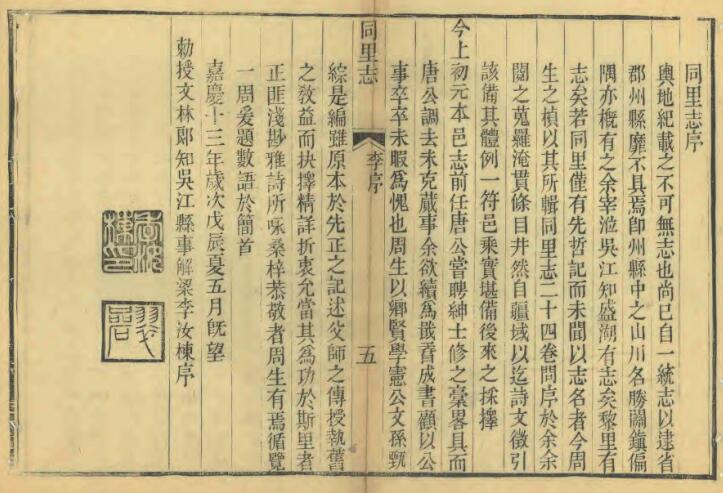 同里志序
輿地紀載之不可無志也尚已自一統志以逮省
郡州縣靡不具焉卽州縣中之山川名勝關鎭偏
隅亦槪有之余宰涖吳江知盛湖有志矣黎里有
志矣若同里僅有先哲記而未聞以志名者今周
生之楨以其所輯同里志二十四卷問序於余余
閱之蒐羅淹貫條目井然自疆域以迄詩文徵引
該備其體例一符邑乘實堪備後來之採擇
今上初元本邑志前任唐公嘗聘紳士修之稾畧具而
唐公調去未克蕆事余欲續爲戢香成書顧以公
事卒卒未暇爲愧也周生以鄕賢學憲公文孫甄
同里志
李序
五
綜是編雖原本於先正之記述父師之傳授執舊
之敎益而抉擇精詳折衷允當其爲功於斯里者
正匪淺尠雅詩所咏桑梓恭敬者周生有焉循覽
一周爰題數語於簡首
嘉慶十三年歲次戊辰夏五月旣望
勅授文林郞知吳江縣事解梁李汝棟序